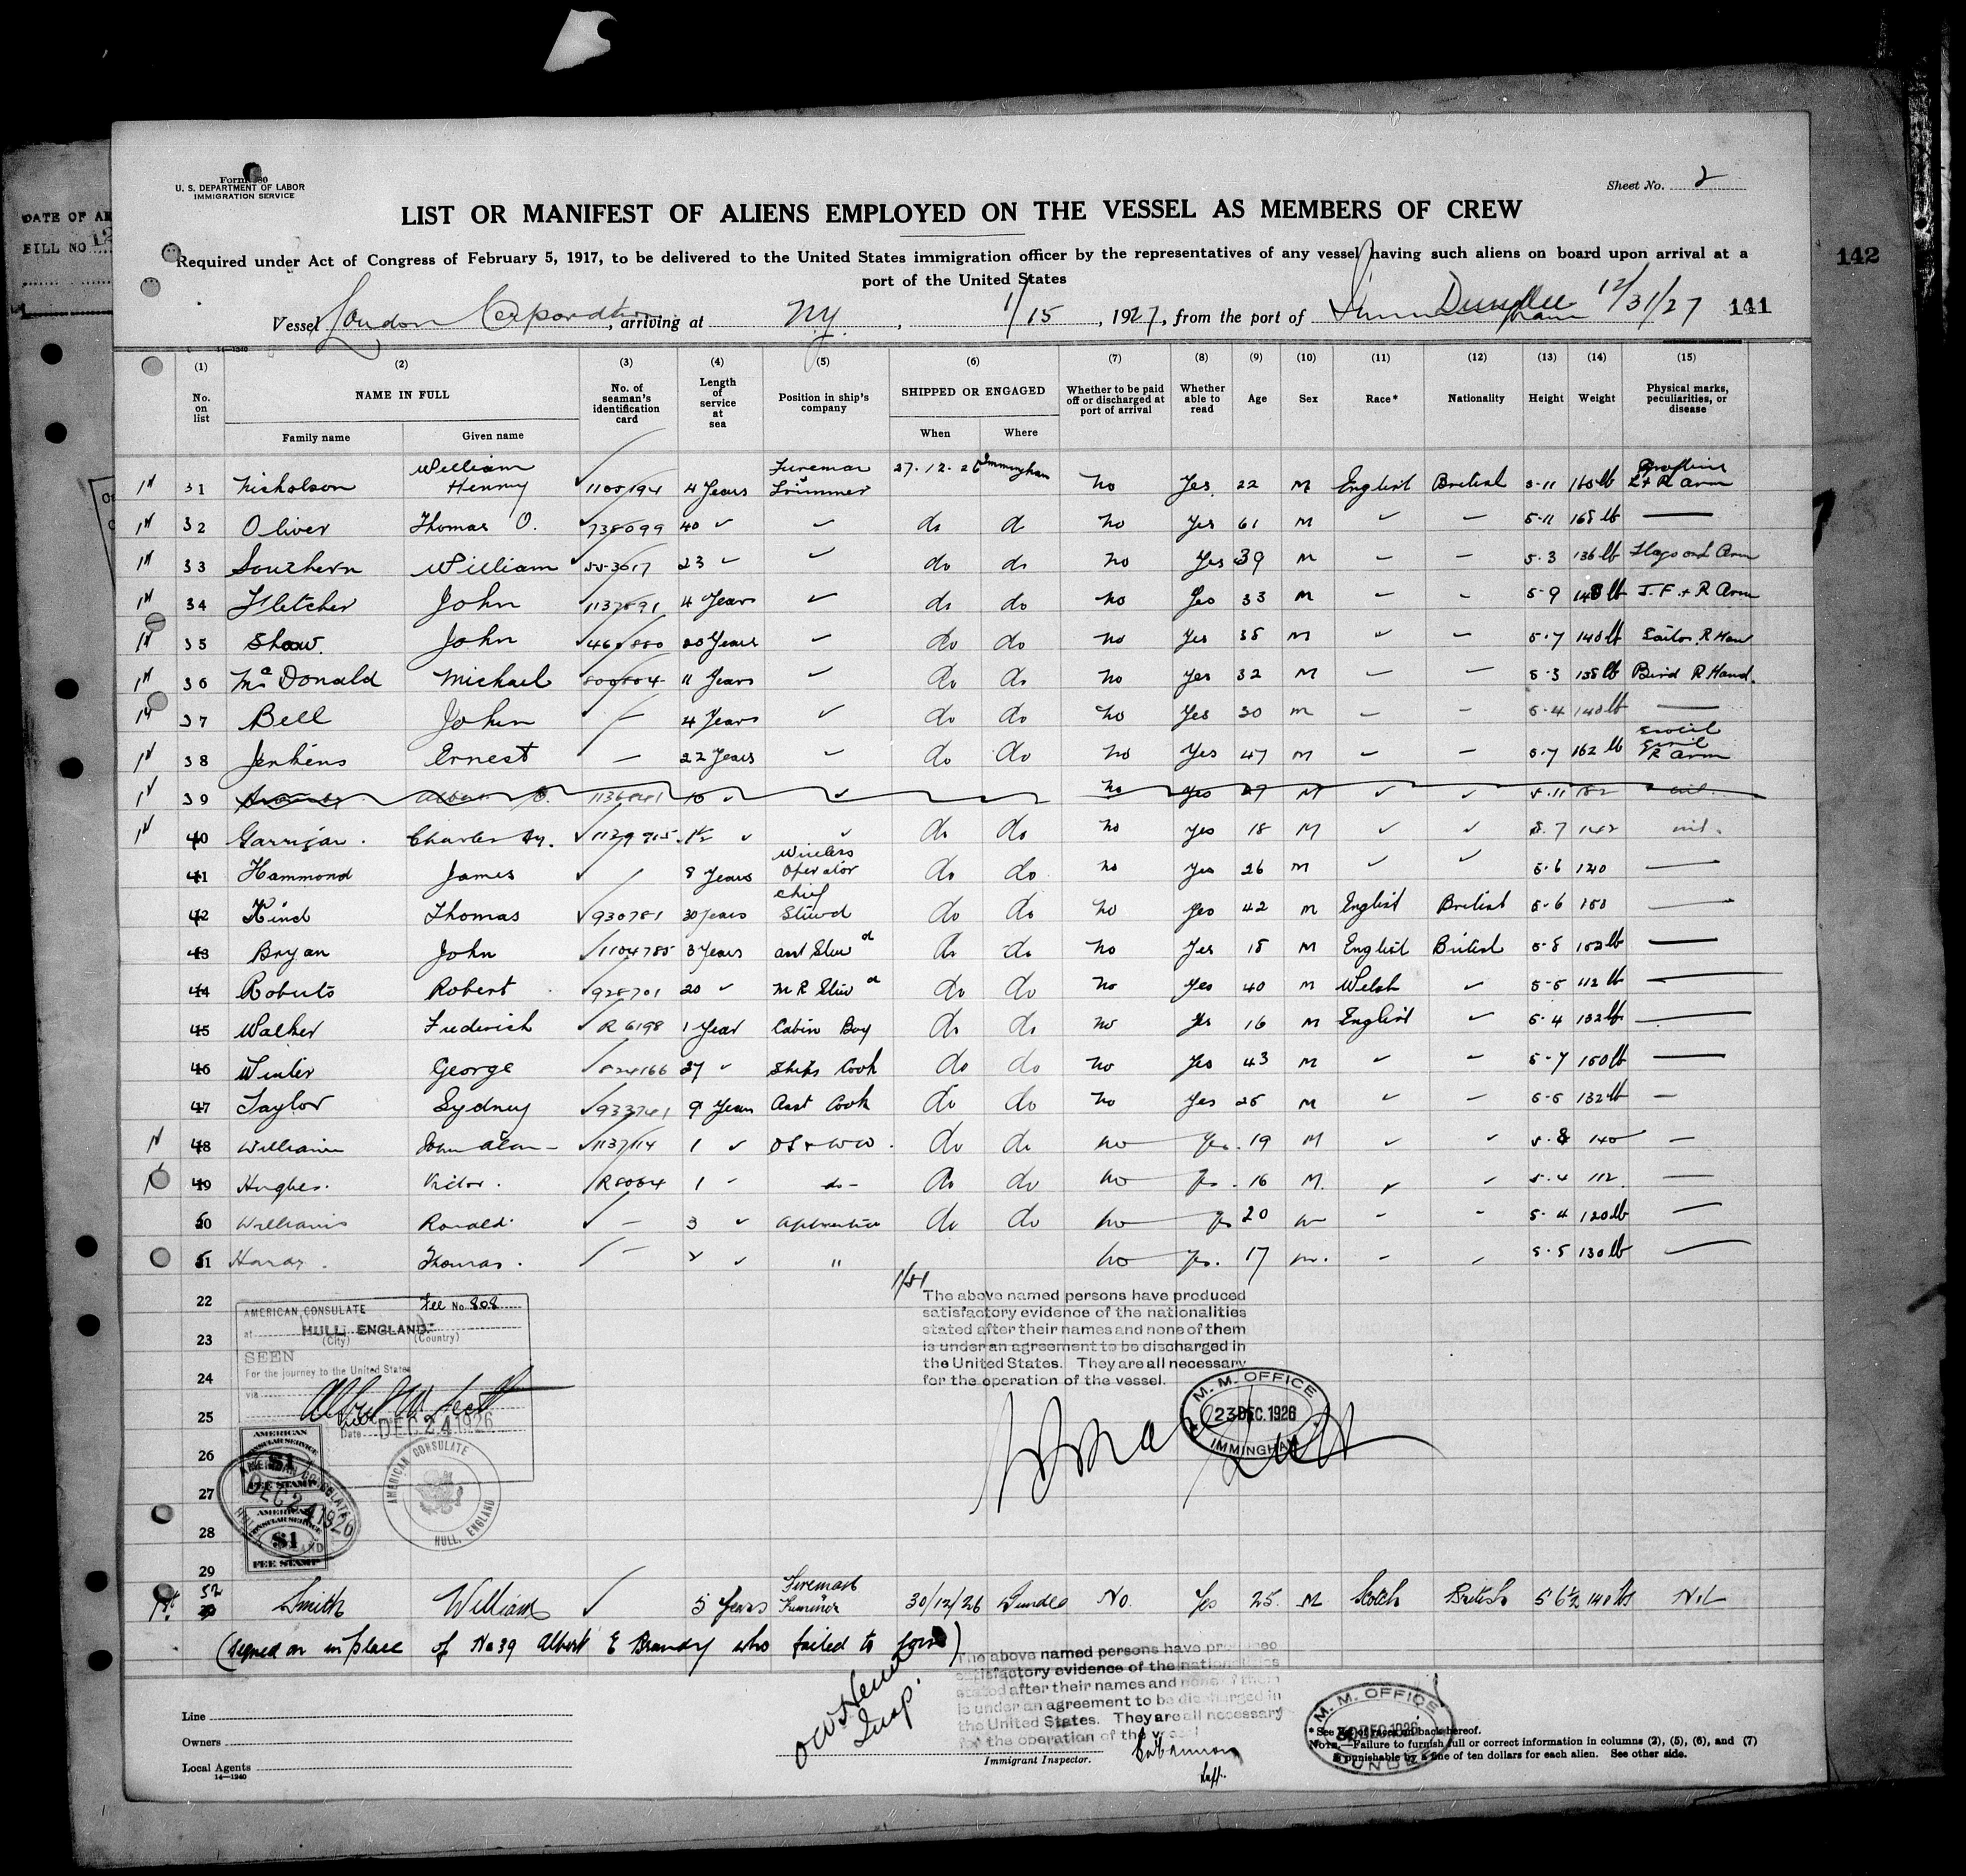 DATE OF AR
FILL NO 12
Form 680
U. S. DEPARTMENT OF LABOR
IMMIGRATION SERVICE
Sheet No. 2
LIST OR MANIFEST OF ALIENS EMPLOYED ON THE VESSEL AS MEMBERS OF CREW
Required under Act of Congress of February 5, 1917, to be delivered to the United States immigration officer by the representatives of any vessel having such aliens on board upon arrival at a
port of the United States
142
Vessel London Corporation, arriving at N.Y., 1/15, 1927, from the port of Dundee 12/31/27 141
14-1240
(1) (2) (3) (4) (5) (6) (7) (8) (9) (10) (11) (12) (13) (14) (15)
No. on list NAME IN FULL No. of seaman's identification card Length of service at sea Position in ship's company SHIPPED OR ENGAGED Whether to be paid off or discharged at port of arrival Whether able to read Age Sex Race* Nationality Height Weight Physical marks, peculiarities, or disease
Family name Given name When Where
1st 31 Nicholson William Henry 1100194 4 Years Fireman & Trimmer 27-12-26 Immingham No Yes 22 M English British 5-11 160 lb L + R Arm
1st 32 Oliver Thomas O. ✓ 738099 40 ✓ ✓ do do No Yes 61 M ✓ — 5-11 168 lb —
1st 33 Southern William ✓ 553617 23 ✓ ✓ do do No Yes 39 M — — 5-3 136 lb Flags on L Arm
1st 34 Fletcher John ✓ 1137891 4 Years ✓ do do No Yes 33 M — — 5-9 148 lb J.F. + R Arm
1st 35 Shaw John ✓ 460880 20 Years ✓ do do No Yes 38 M ✓ — 5-7 140 lb Sailor R Han
1st 36 McDonald Michael 800804 11 Years ✓ do do No Yes 32 M — — 5-3 138 lb Bird R Hand.
1st 37 Bell John ✓ — 4 Years ✓ do do No Yes 30 M — — 5-4 140 lb —
1st 38 Jenkins Ernest — 22 Years ✓ do do No Yes 47 M — — 5-7 162 lb R Arm
1st 39 Albert E. 1136841 10 ✓ ✓ No Yes 27 M ✓ ✓ 5.11 182 nil.
1st 40 Garrigan. Charles Hy. ✓ 1129905 1½ ✓ ✓ do do No Yes 18 M ✓ ✓ 5.7 142 nil.
41 Hammond James ✓ 8 Years Wireless Operator do do No Yes 26 M ✓ ✓ 5-6 120 —
42 Kind Thomas ✓ 930781 30 years Chief Steward do do No Yes 42 M English British 5-6 150 —
43 Bryan John ✓ 1104785 3 Years asst Stewd do do No Yes 18 M English British 5-8 152 lb —
44 Roberts Robert ✓ 928701 20 ✓ M R Stewd do do No Yes 40 M Welsh ✓ 5-5 112 lb —
45 Walker Frederick ✓ R 6198 1 Year Cabin Boy do do No Yes 16 M English ✓ 5-4 132 lb —
46 Winter George ✓ 824166 27 ✓ Ships Cook do do No Yes 43 M ✓ — 5-7 150 lb —
47 Taylor Sydney ✓ 933741 9 Years Asst Cook do do No Yes 25 M ✓ — 5-5 132 lb —
1st 48 Williams John Alan — ✓ 1137114 1 ✓ OS & WW. do do No Yes. 19 M ✓ ✓ 5.8 140 —
49 Hughes. Victor. ✓ R 8064 1 ✓ do - do do No Yes. 16 M. ✓ ✓ 5.4 112 —
50 Williams Ronald ✓ — 3 ✓ Apprentice do do No Yes 20 m — — 5-4 120 lb —
51 Hardy. Thomas. ✓ — 2 ✓ " No Yes. 17 m. — ✓ 5-5 130 lb —
1/51
The above named persons have produced
satisfactory evidence of the nationalities
stated after their names and none of them
is under an agreement to be discharged in
the United States. They are all necessary
for the operation of the vessel.
22
23
24
25
26
27
28
29
AMERICAN CONSULATE Fee No. 808
at HULL ENGLAND.
(City) (Country)
SEEN
For the journey to the United States
via
Date DEC 24 1926
M. M. OFFICE
23 DEC. 1926
IMMINGHAM
AMERICAN CONSULAR SERVICE
$1
FEE STAMP
AMERICAN CONSULATE
DEC 24 1926
AMERICAN CONSULAR SERVICE
$1
FEE STAMP
AMERICAN CONSULATE
HULL, ENGLAND
1st 52 Smith William ✓ 5 Years Fireman Trimmer 30/12/26 Dundee No. Yes 25. M Scotch British 5 6½ 148 lbs Nil
(signed on in place of No 39 Albert E Brandy who failed to join)
The above named persons have produced
satisfactory evidence of the nationalities
stated after their names and none of them
is under an agreement to be discharged in
the United States. They are all necessary
for the operation of the vessel
Insp.
Line
Owners
Local Agents
14-1240
Immigrant Inspector.
Supt.
M. M. OFFICE
30 DEC 1926
DUNDEE
* See list of races on back hereof.
NOTE.—Failure to furnish full or correct information in columns (2), (5), (6), and (7)
is punishable by a fine of ten dollars for each alien. See other side.